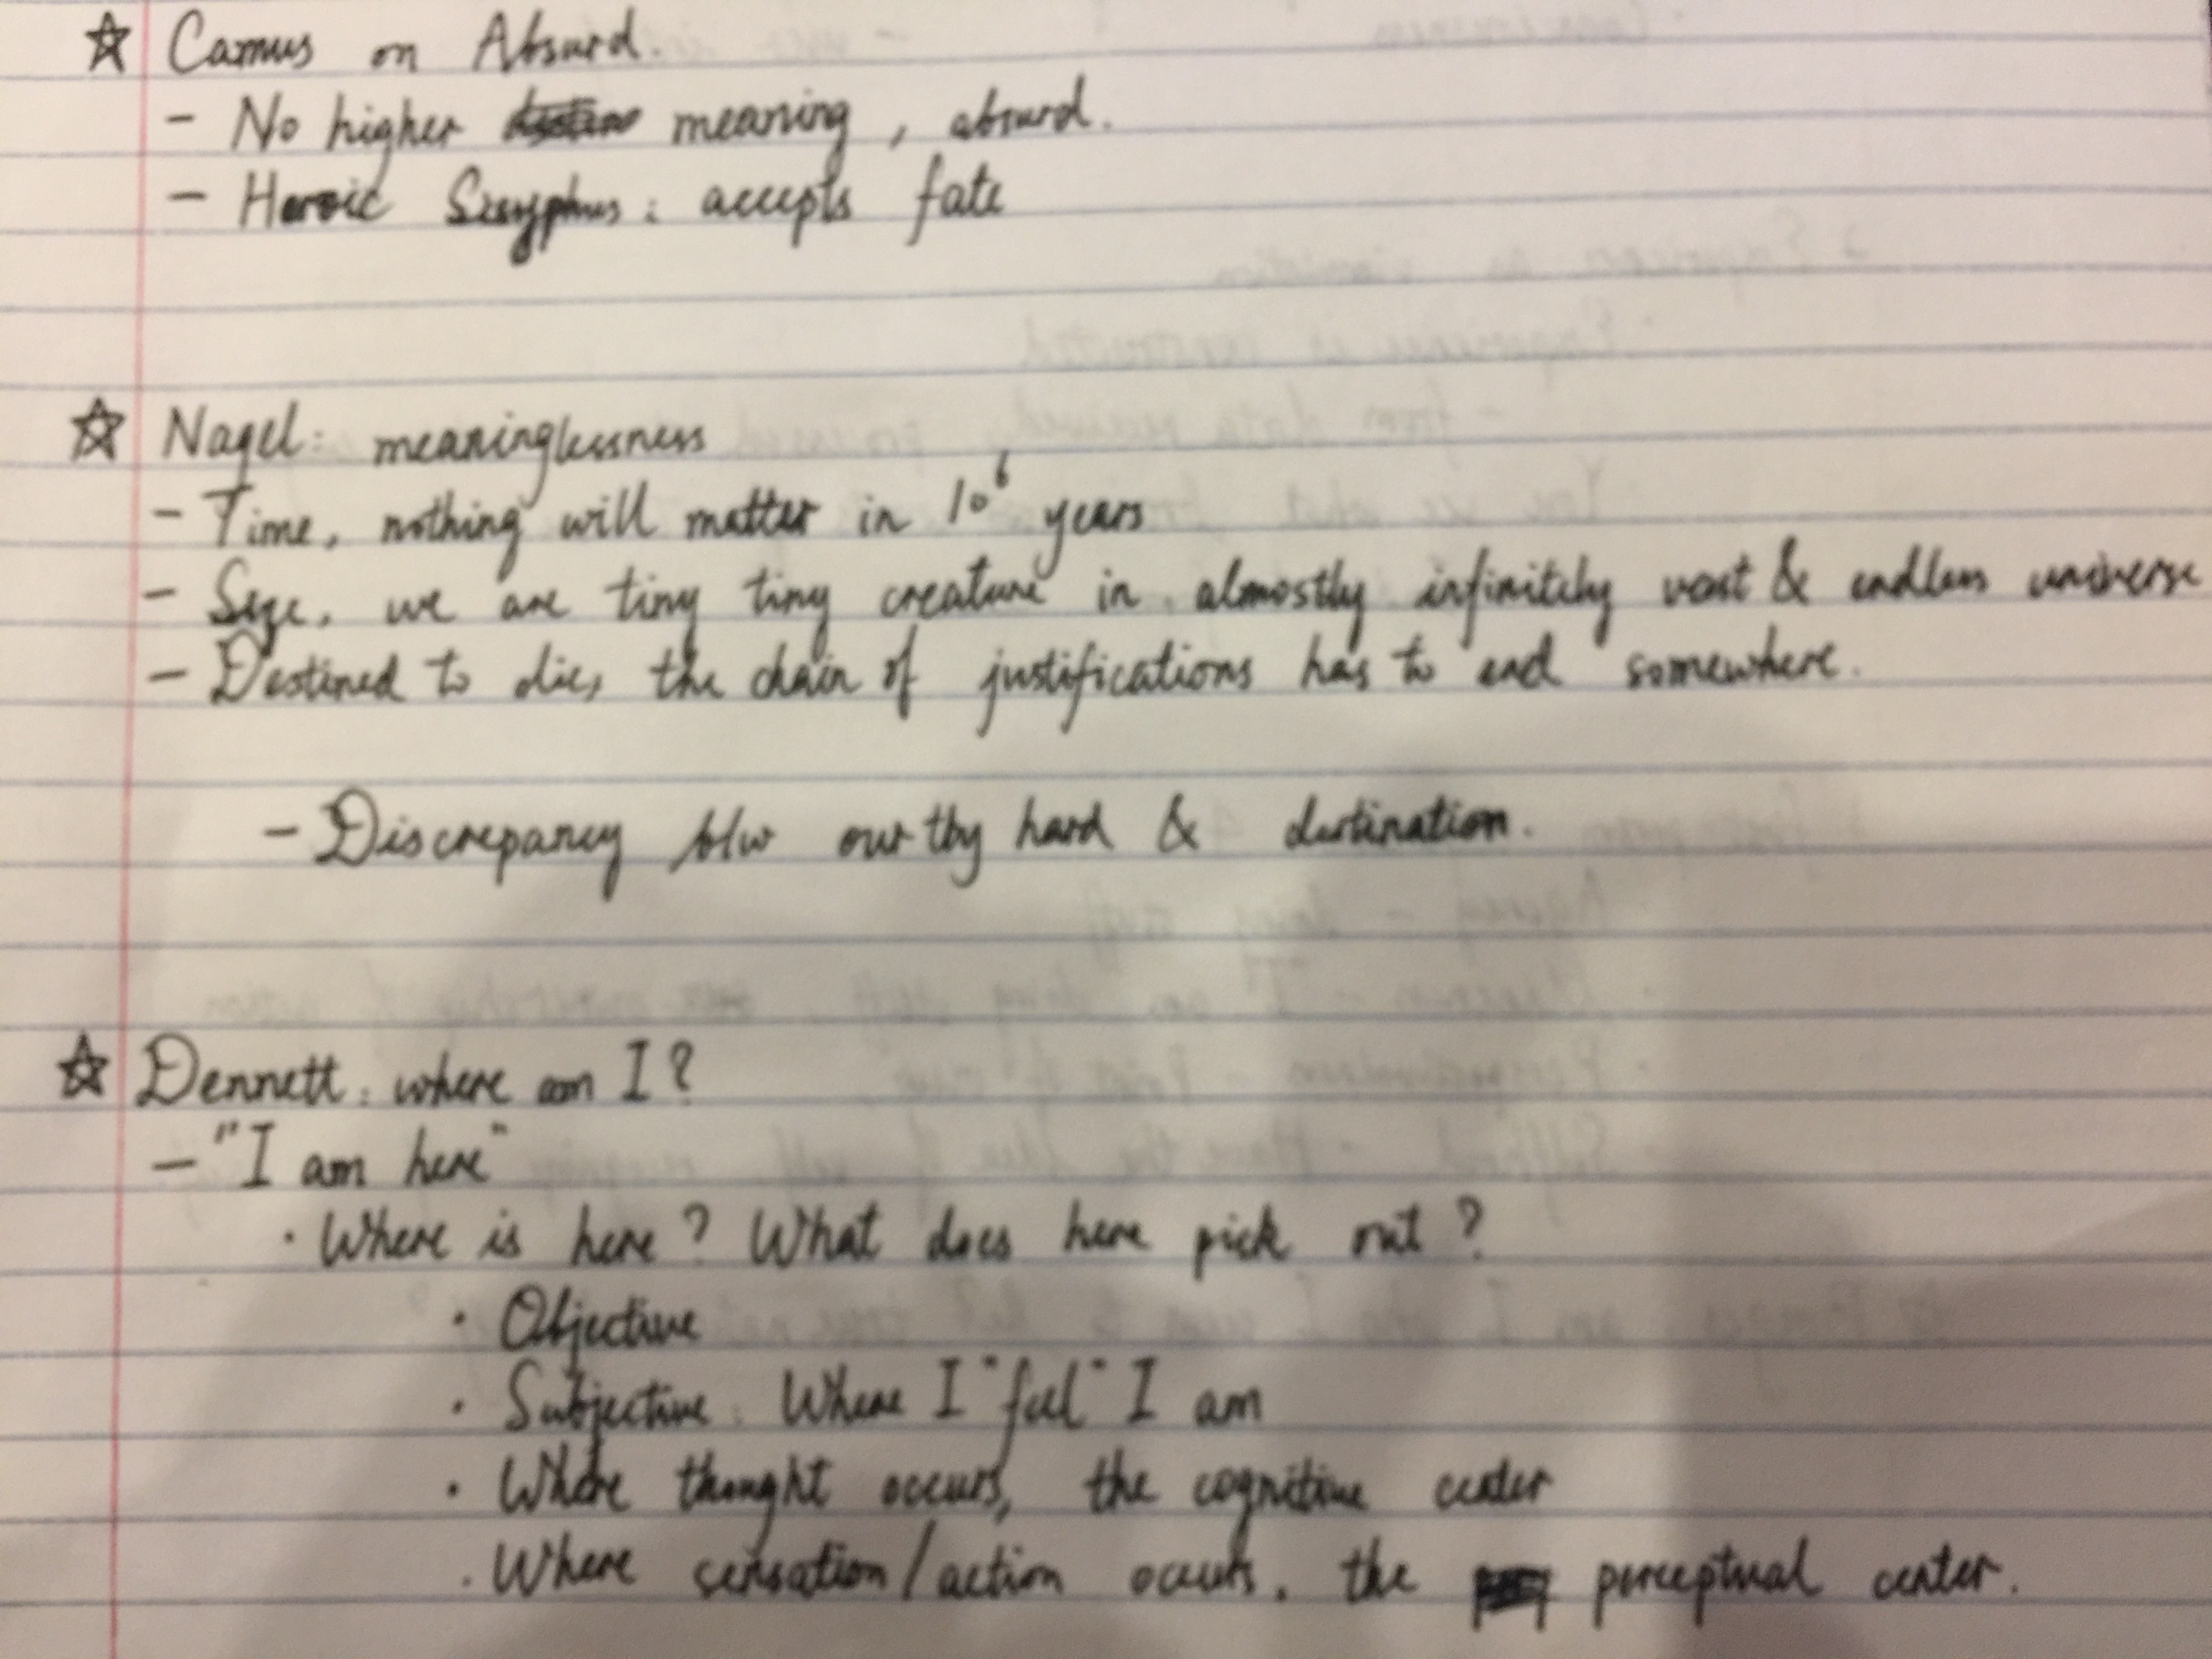 ☆ Camus on Absurd.
- No higher meaning, absurd.
- Heroic Sisyphus: accepts fate
☆ Nagel: meaninglessness
- Time, nothing will matter in 10⁶ years
- Size, we are tiny tiny creature in almostly infinitely vast & endless universe
- Destined to die, the chain of justifications has to end somewhere.
- Discrepancy b/w our thy hard & destination.
☆ Dennett: where am I?
- "I am here"
· Where is here? What does here pick out?
· Objective
· Subjective: Where I "feel" I am
· Where thought occurs, the cognitive center
· Where sensation/action occurs, the perceptual center.